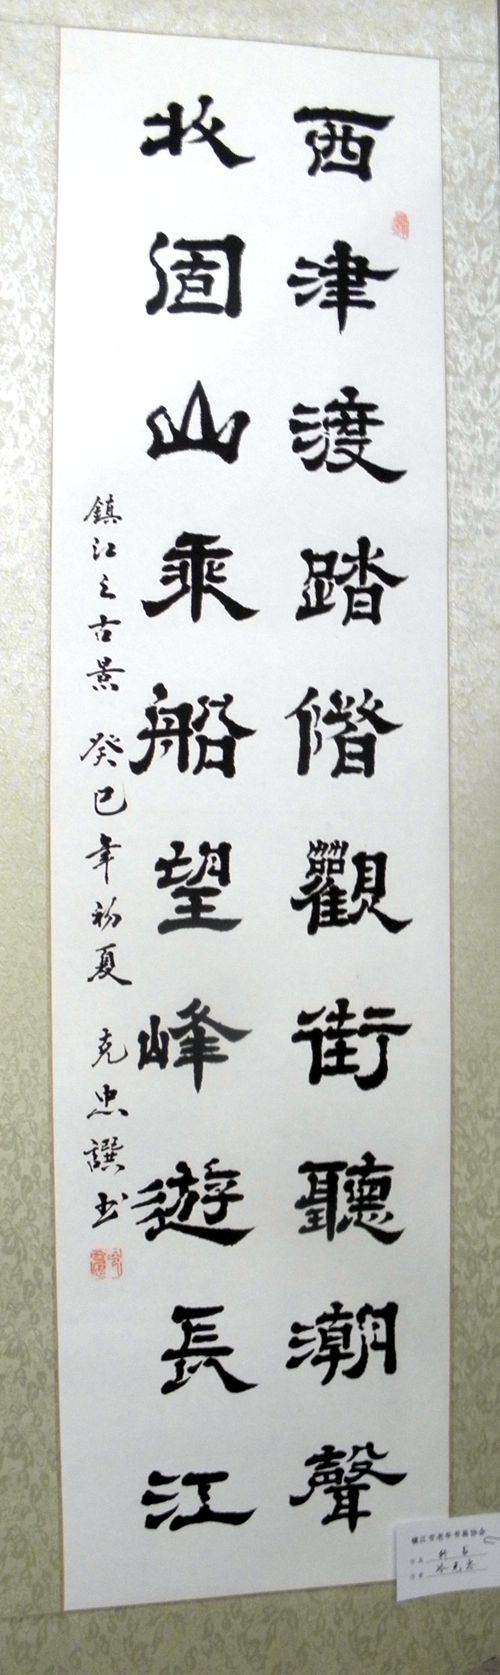 西津渡踏偕觀街聽潮聲
北固山乘船望峰遊長江
鎮江之古景 癸巳年初夏 克忠譔书
镇江市老年书画协会